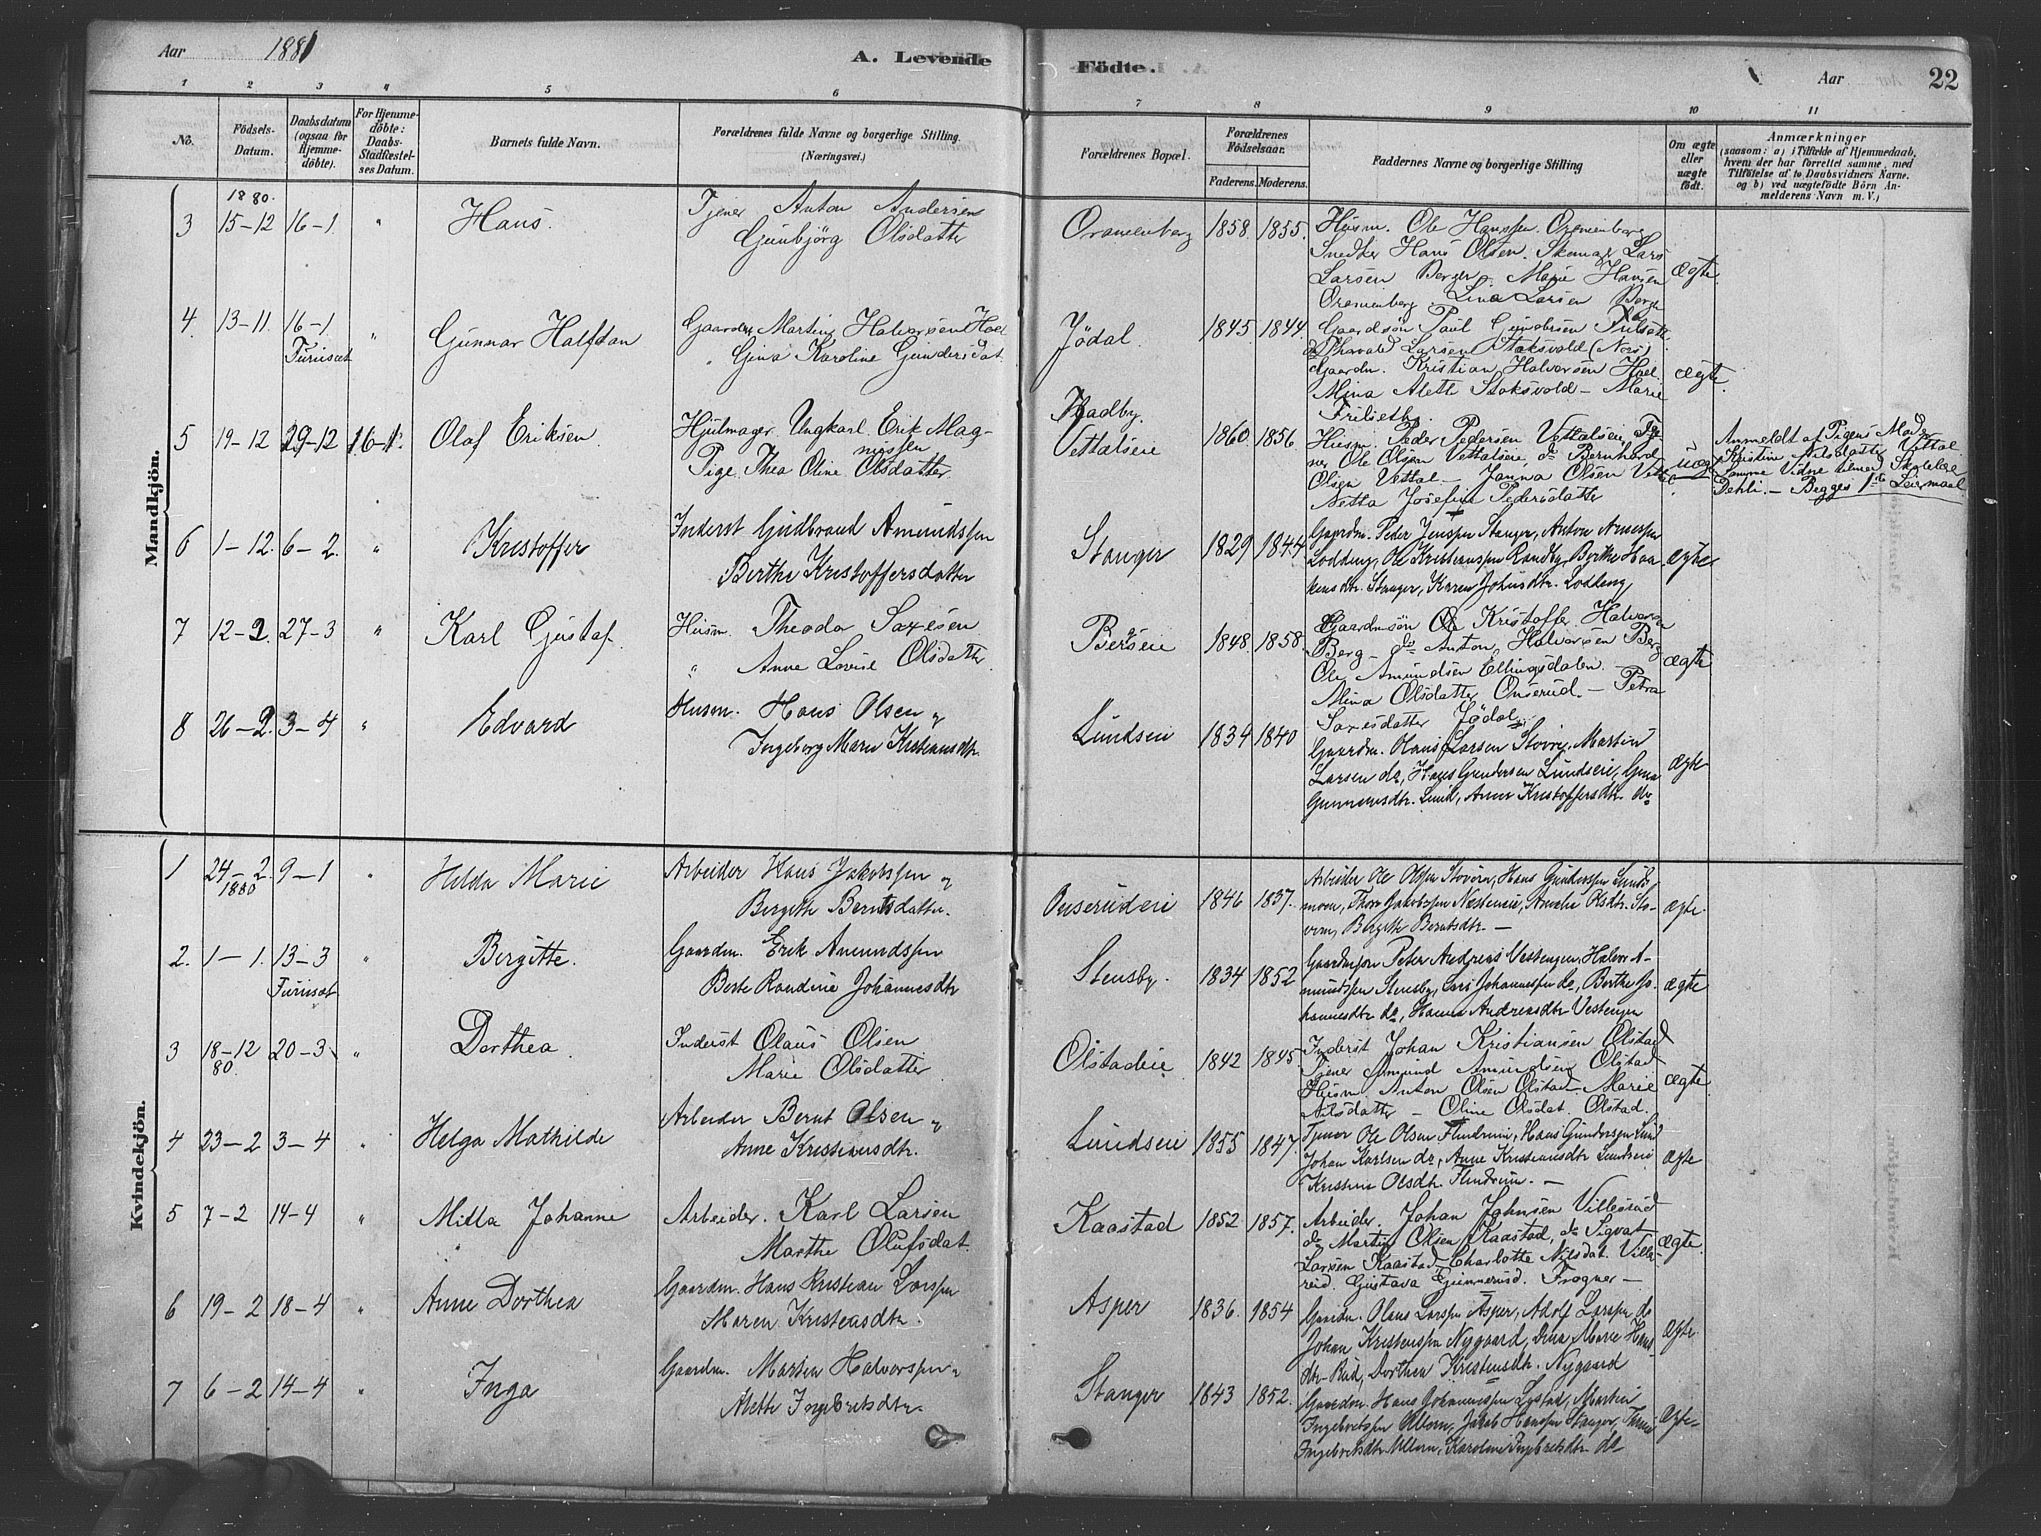 Aar 1881 A. Levende Födte. Aar 22
1 2 3 4 5 6 7 8 9 10 11
No.
Födsels-Datum.
Daabsdatum (ogsaa for Hjemmedöbte).
For Hjemmedöbte: Daabs-Stadfæstelses Datum.
Barnets fulde Navn.
Forældrenes fulde Navne og borgerlige Stilling.
(Næringsvei.)
Forældrenes Bopæl.
Forældrenes Födselsaar.
Faderens. Moderens.
Faddernes Navne og borgerlige Stilling
Om ægte eller uægte født.
Anmærkninger
(saasom: a) i Tilfælde af Hjemmedaab,
hvem der har forrettet samme, med
Tilföielse af to Daabsvidners Navne.
og b) ved uægtefödte Börn An-
melderens Navn m. V.)
Mandkjön.
1880.
3 15-12 16-1 " Hans. Tjener Anton Andersen
Gunbjörg Olsdatter
Oramenberg 1858. 1855.
Husm. Ole Hanssen Oramenberg
Snedker Hans Olsen. Skomag. Lars
Larsen Berger. Marie Hansen
Oramenberg. Lina Larsen Berger
Ægte.
4 13-11. 16-1 Furuset " Gunnar Halfdan
Gaardm. Martin Halvorsen Hoel
" Gina Karoline Gundersdat.
Jödal. 1845 1844.
Gaardsön Paul Gundersen
do Thorvald Larsen Stoksvold (Næs)
Gaardm. Kristian Halvorsen Hoel.
Mina Alette Stoksvold – Marie
Ægte.
5 19-12 29-12 16-1. Olaf Eriksen.
Hjulmager Ungkarl Erik Mag-
nussen
Pige Thea Oline Olsdatter
Kadby.
Vettalseie 1860. 1856
Husm. Peder Pedersen Vettalseie, Tje-
ner Ole Olsen Vettalseie, do Bernhard
Olsen Vettal – Janna Olsen Vettal
Netta Josefine Pedersdatter
uægte
Anmeldt af Pigens Moder
Kristine Vettal.
Samme Vidne tilmed Skolelærer
Dehli. – Begges 1ste Leiermaal
6 1-12. 6-2. " Kristoffer
Inderst Gudbrand Amundssen
Berthe Kristoffersdatter
Stanger 1829 1844.
Gaardm. Peder Jenssen Stanger, Anton Anderssen
Lodding, Ole Kristianssen Randby, Berthe Haa-
kensdtr. Stanger, Karen Johnsdtr. Lodding
Ægte
7 12-2. 27-3 " Karl Gustaf.
Husm. Theodor Saxesen
" Anne Lovise Olsdatter
Bergseie 1848. 1858.
Gaardmsön Kristoffer Halvorsen
Berg – do Anton Halvorsen Berg
Ole Amundsen Ellingsdalen. –
Mina Olsdatter Onserud. – Petra
Saxesdatter Jödal
Ægte
8 26-2. 3-4 " Edvard
Husm. Hans Olsen "
Ingeborg Marie Kristiansdtr.
Lundseie 1834 1840
Gaardm. Olaus Larsen Stovre, Martin
Larsen do, Hans Gundersen Lundseie, Gina
Gunnersdtr. Lund, Anne Kristoffersdtr. do
Ægte
Kvindekjön.
1 24-2. 1880 9-1 " Helda Marie
Arbeider Hans Jakobssen "
Bergitte Berntsdatter.
Onserudeie 1846 1837.
Arbeider Ole Olssen Stovern, Hans Gunderssen Lunds
moen, Thor Jakobssen Næsteneie, Amalie Olsdtr. Sto-
vern, Bergitte Berntsdtr. –
Ægte.
2. 1-1. 13-3 Furuset " Bergitte.
Gaardm. Erik Amundssen
Berte Randine Johannesdtr
Stensby. 1834 1852
Gaardmson Peter Andreas Vestengen, Halvor A-
mundssen Stensby, Lars Johannessen do, Berthe Jo-
hannesdtr do, Hanna Andreasdtr Vestengen
Ægte
3 18-12 80. 20-3 " Dorthea.
Inderst Olaus Olsen
Marie Olsdatter
Olstadeie 1842 1845
Inderst Johan Kristiansen Olstad
Tjener Amund Amundsen Olstad
Husm. Anton Olsen Olstad – Marie
Nilsdatter – Oline Olsdat. Olstad.
Ægte
4 23-2 3-4 " Helga Mathilde
Arbeider Bernt Olsen "
Anne Kristiansdtr.
Lundseie 1855 1847.
Tjener Ole Olsen Flindrum, Hans Gunderssen Lund
Johan Karlsen do, Anne Kristiansdtr Lundseie
Kristine Olsdtr. Flindrum. –
Ægte
5 7-2 14-4 " Milla Johanne
Arbeider. Karl Larsen
Marthe Olufsdat.
Kaastad 1852 1857.
Arbeider. Johan Johnsen Villerud
do Martin Olsen Kaastad, do Sigvat
Larsen Kaastad – Charlotte Nilsdat. Ville-
rud. Gustava Gunnerud. Frogner –
Ægte.
6 19-2 18-4 " Anne Dorthea
Gaardm. Hans Kristian Larssen
Maren Kristensdtr.
Asper 1836. 1854
Gaardm. Olaus Larssen Asper, Adolf Larssen do
Johan Kristenssen Nygaard, Dina Marie Hans
dtr. Rud, Dorthea Kristensdtr. Nygaard
Ægte.
7 6-2 14-4 " Inga
Gaardm. Martin Halvorssen "
Mette Ingebretsdtr.
Stanger 1843 1852.
Gaardm. Hans Johannessen Lystad, Martin
Ingebretssen Ullern, Jakob Hanssen Stanger,
Ingebretsdtr Ullern, Karoline Ingebretsdtr do
Ægte